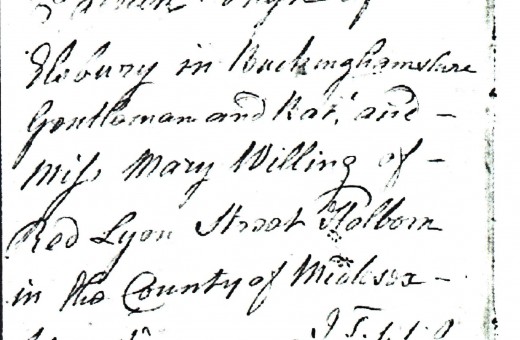 of
Elsbury in Buckinghamshire
Gentleman and Bat.^r and —
Miss Mary Willing of —
Red Lyon Street Holborn
in the County of Midlesex —